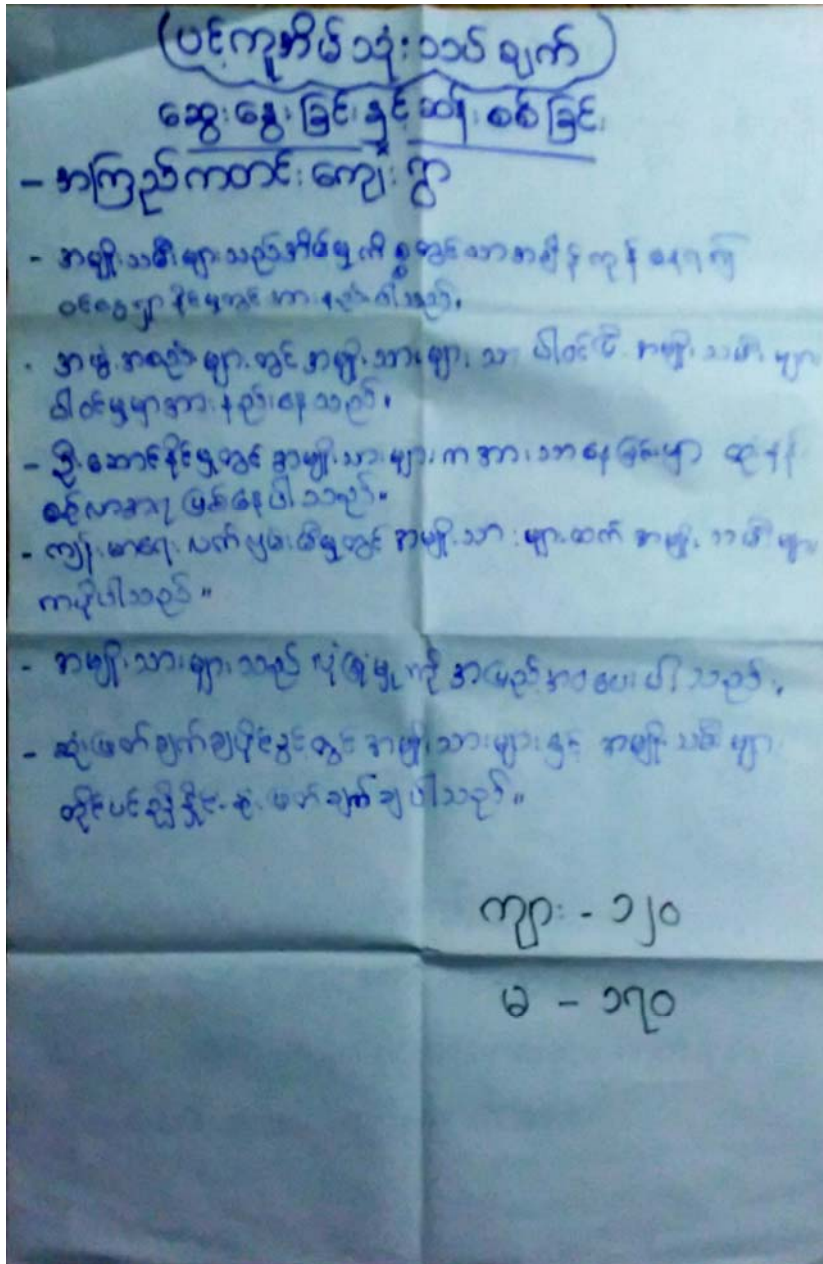 (ပင့်ကူအိမ်သုံးသပ်ချက်)
ဆွေးနွေးခြင်းနှင့်ဆန်းစစ်ခြင်း
- အကြည်ကတင်းကျေးရွာ
- အမျိုးသမီးများသည်အိမ်မှုကိစ္စတွင်သာအချိန်ကုန်နေရ၍
ဝင်ငွေရှာနိုင်မှုတွင် အားနည်းပါသည်။
- အဖွဲ့အစည်းများတွင် အမျိုးသားများသာ ပါဝင်ပြီး အမျိုးသမီးများ
ပါဝင်မှုမှာအားနည်းနေသည်။
- ဦးဆောင်နိုင်မှုတွင် အမျိုးသားများကအားသာနေခြင်းမှာ ထုံးတမ်း
စဉ်လာအရ ဖြစ်နေပါသည်။
- ကျန်းမာရေးလက်လှမ်းမီမှုတွင် အမျိုးသားများထက် အမျိုးသမီးများ
ကပိုပါသည်။
- အမျိုးသားများသည် လုံခြုံမှုကို အပြည့်အဝပေးပါသည်။
- ဆုံးဖြတ်ချက်ချပိုင်ခွင့်တွင် အမျိုးသားများနှင့် အမျိုးသမီးများ
တိုင်ပင်ညှိနှိုင်းဆုံးဖြတ်ချက်ချပါသည်။
ကျား - ၁၂၀
မ - ၁၇၀